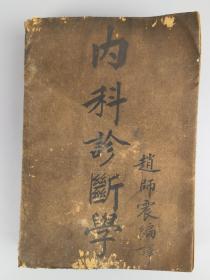 内科診斷學
趙師震編譯